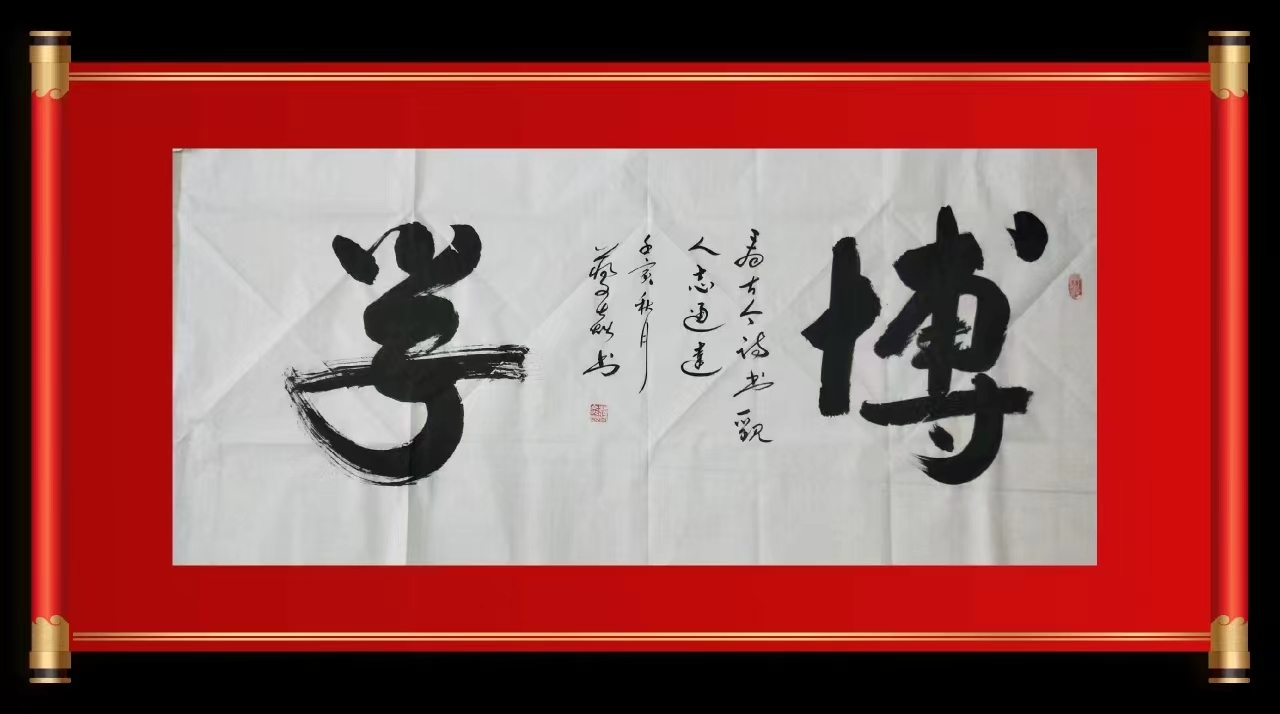 博学
古今诗书
人志通达
壬寅秋月
书